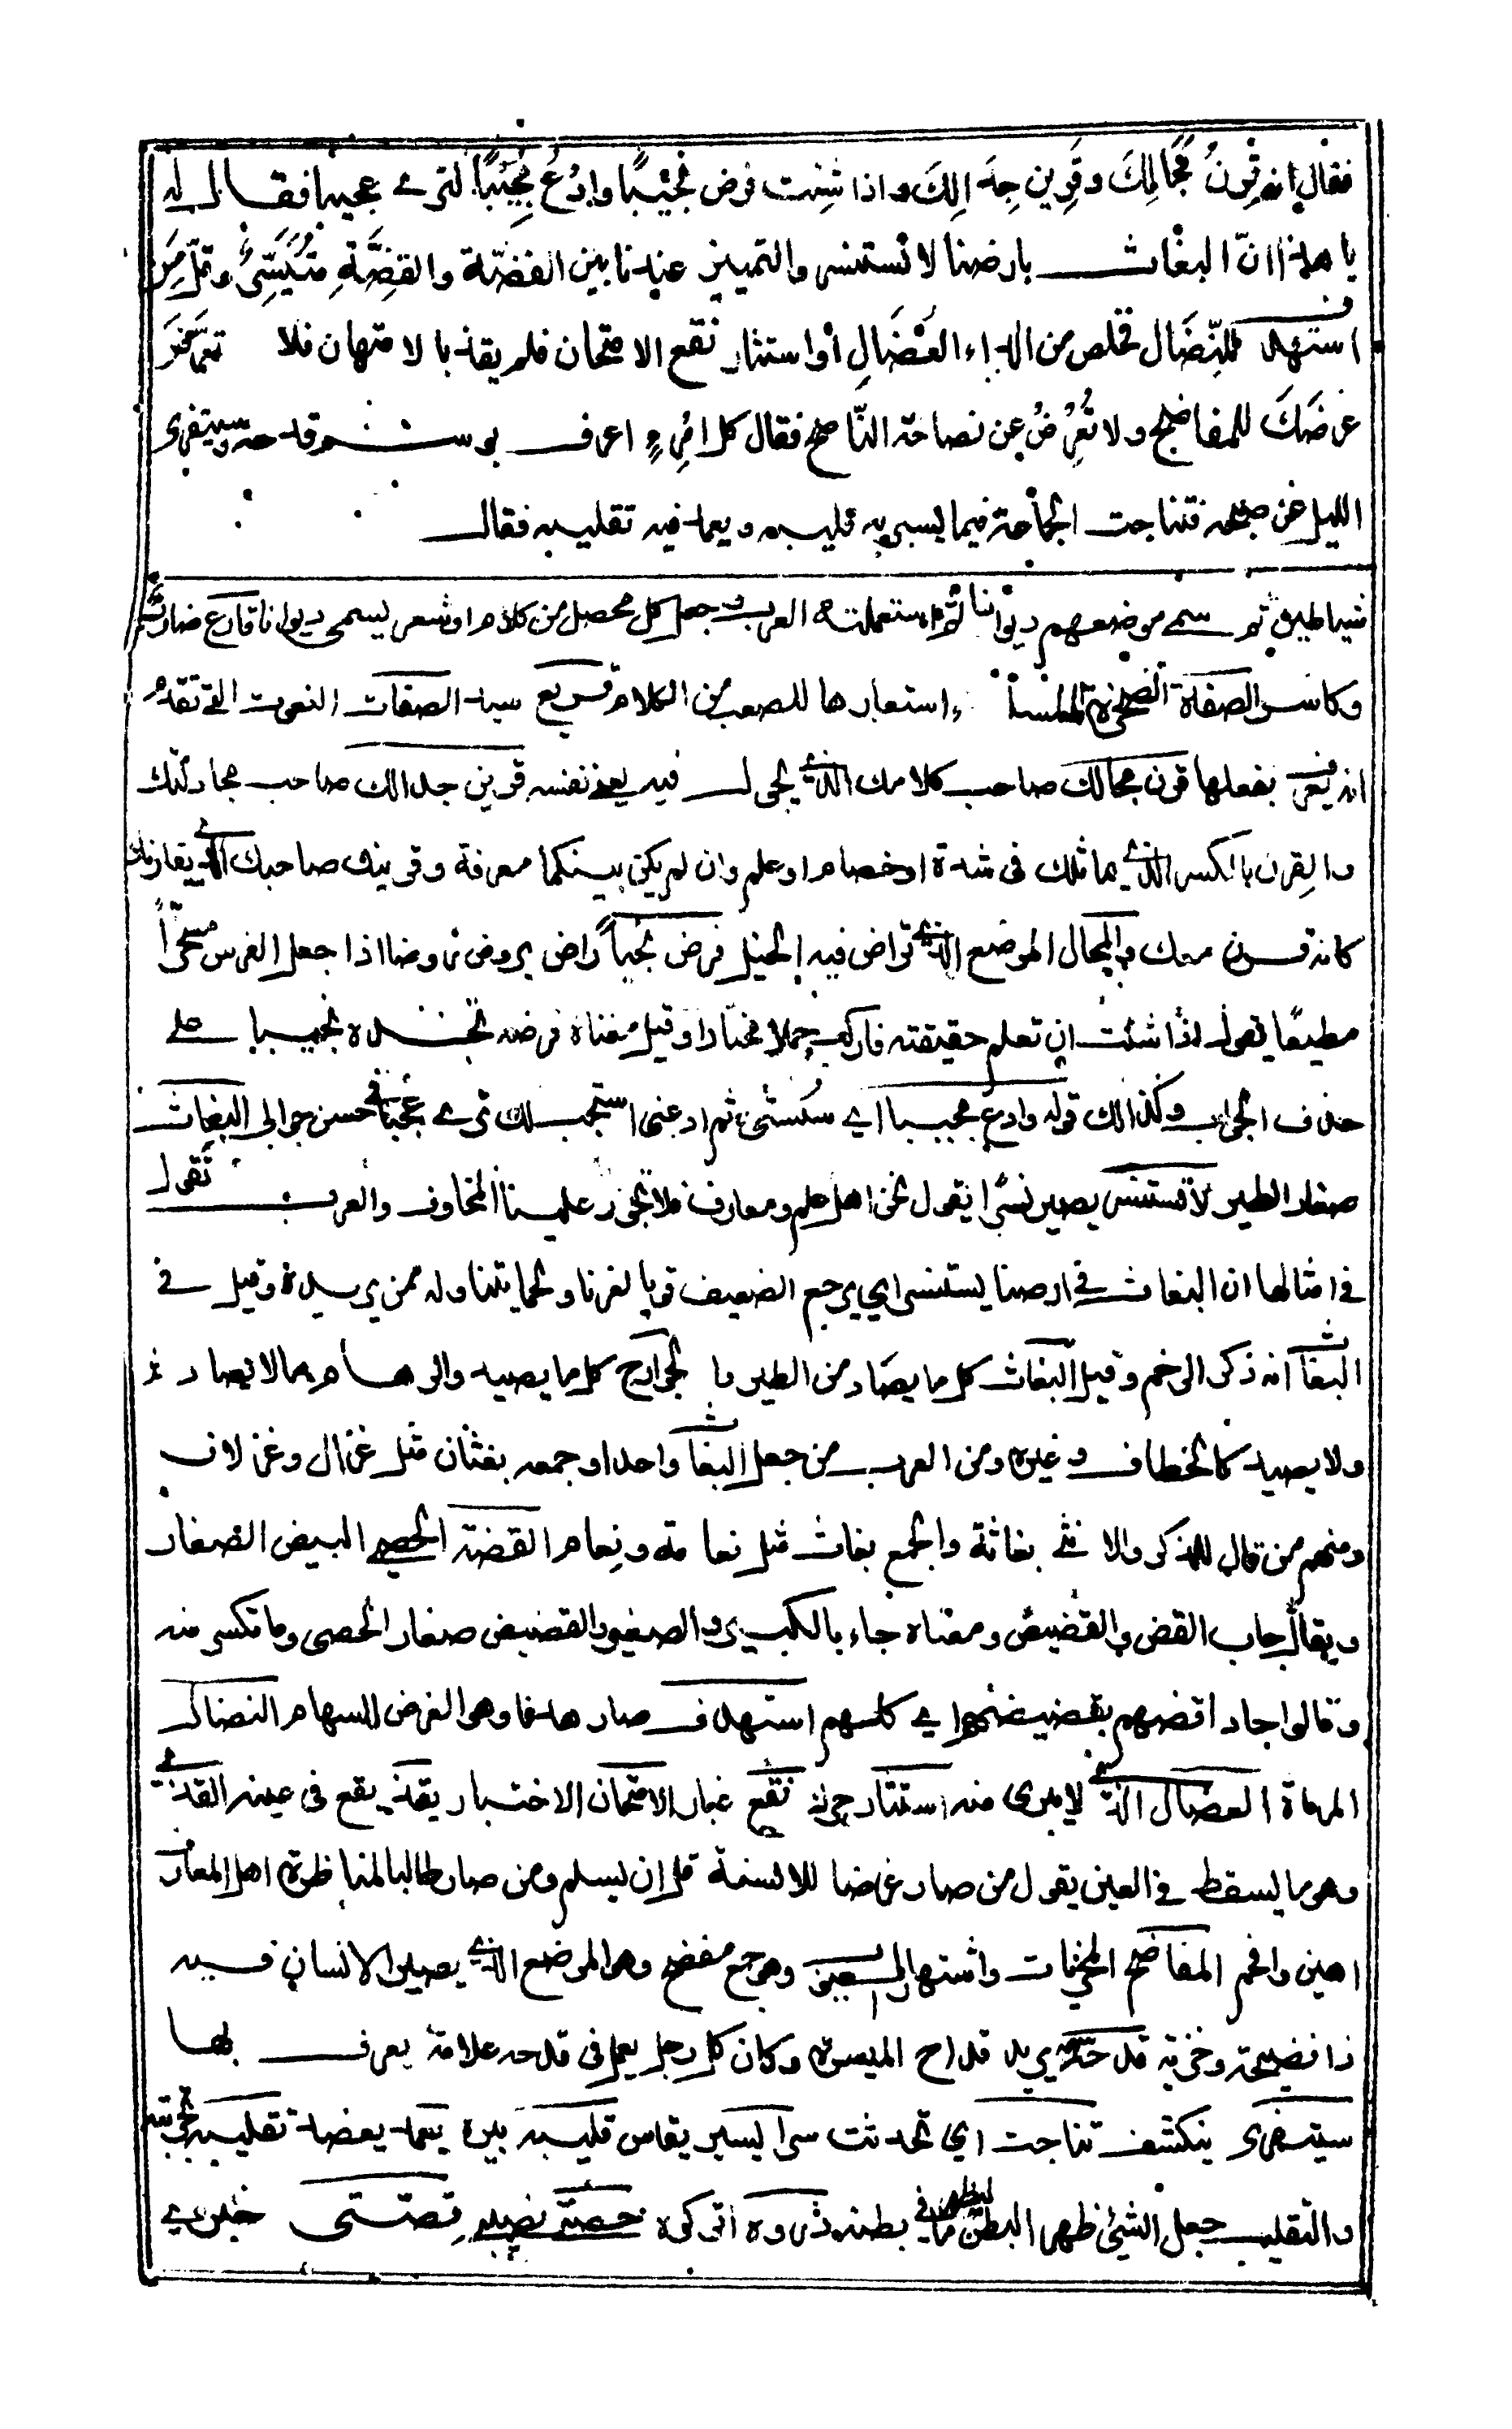 فقال انه قِرنُ مَجَالِكَ وقَرِين جِدَالِكَ واذا شِئت فرض نجيبًا وادْعُ مُجِيْبًا لترى عجيبا فقال له
يا هذا انّ البغاث بارضنا لا تستنسر والتمييز عندنا بين الفضّة والقضّةِ مُتَيَسِّرٌ وقلّ مَن
استهدف للنِّضَال فخلص من الداء العُضَالِ أو استثار نقع الامتحان فلم يقذ بالامتهان فلا
عرضَكَ للمفاضح ولا تُعرِضْ عن نصاحة النّاصح فقال كل امْرِءٍ اعرف بوسم قدحه وسيتفرى
الليل عن صبحه فتناجت الجماعة فيما يسبر به قليبه ويعمد فيه تقليبه فقال
شياطين ثم سمى موضعهم ديوانا ثم استعملته العرب وجعل كل محصل من كلام او شعر يسمى ديوانا قارع ضارب
وكاسر الصفاة الصخرة الملساء استعارها للصعب من الكلام قريع سيد الصفات النعوت التي تقدم
انه يعرف بفعلها قرن مجالك صاحب كلامك الذي يجول فيه يعني نفسه قرين جدالك صاحب مجادلتك
والقِرن بالكسر الذي يماثلك في شدة او خصام او علم وان لم يكن بينكما معرفة وقرينك صاحبك الذي يقارنك
كانه قرن معك والمجال الموضع الذي تراض فيه الخيل فرض نجيباً راض يروض روضا اذا جعل الفرس مسخّراً
مطيعًا يقول اذا شئت ان تعلم حقيقته فاركب جملا مختارا وقيل معناه فرضه تجده نجيبا على
حذف الجواب وكذالك قوله وادع مجيبا اي سكستى ثم ادعنى استجب لك ترى عجبا في حسن جوابي البغاث
صغار الطير لا تستنسر يصير نسرًا يقول نحن اهل علم ومعارف فلا تجوز علينا المخاوف والعرب تقول
في امثالها ان البغاث في ارضنا يستنسر اي يرجع الضعيف قويا لعزنا وحمايتنا وله ممن يريده وقيل في
البغاث انه ذكر الرخم وقيل البغاث كل ما يصاد من الطير وا لجوارح كل ما يصيد والرهام ما لا يصاد
ولا يصيد كالخطاف وغيره ومن العرب من جعل البغاث واحدا وجمعه بغثان مثل غزال وغزلان
ومنهم من قال للذكر والانثى بغاثة والجمع بغاث مثل نعامة ونعام القضة الحصى البيض الصغار
ويقال جاء القض والقضيض ومعناه جاء بالكبير والصغير والقضيض صغار الحصى وما تكسر منه
وقالوا جاء اقضهم بقضيضهم اي كلهم استهدف صار هدفا وهو الغرض للسهام النضال
المرماة العضال الذي لا يبرى منه استثار حرك نقع غبار الامتحان الاختبار يقذ يقع في عينه القذى
وهو ما يسقط في العين يقول من صار غرضا للالسنة قل ان يسلم ومن صار طالبا لمناظرة اهل المعارف
اهين وافحم المفاضح المخزيات واشتهار العيب وهو جمع مفضح وهو الموضع الذي يصير الانسان فيه
ذا فضيحة وخزية قدحه يريد قداح الميسر وكان كل رجل يعمل في قدحه علامة يعرف بها
سيتفرى ينكشف تناجت اي تحدثت سرا يسبر يقاس قليبه بيره يعمد يقصد تقليبه تجربته
والتقليب جعل الشيئ ظهرا لبطن ليظهر ما في بطنه ذروه اتركوه حصتي نصيبي قصتي خبري